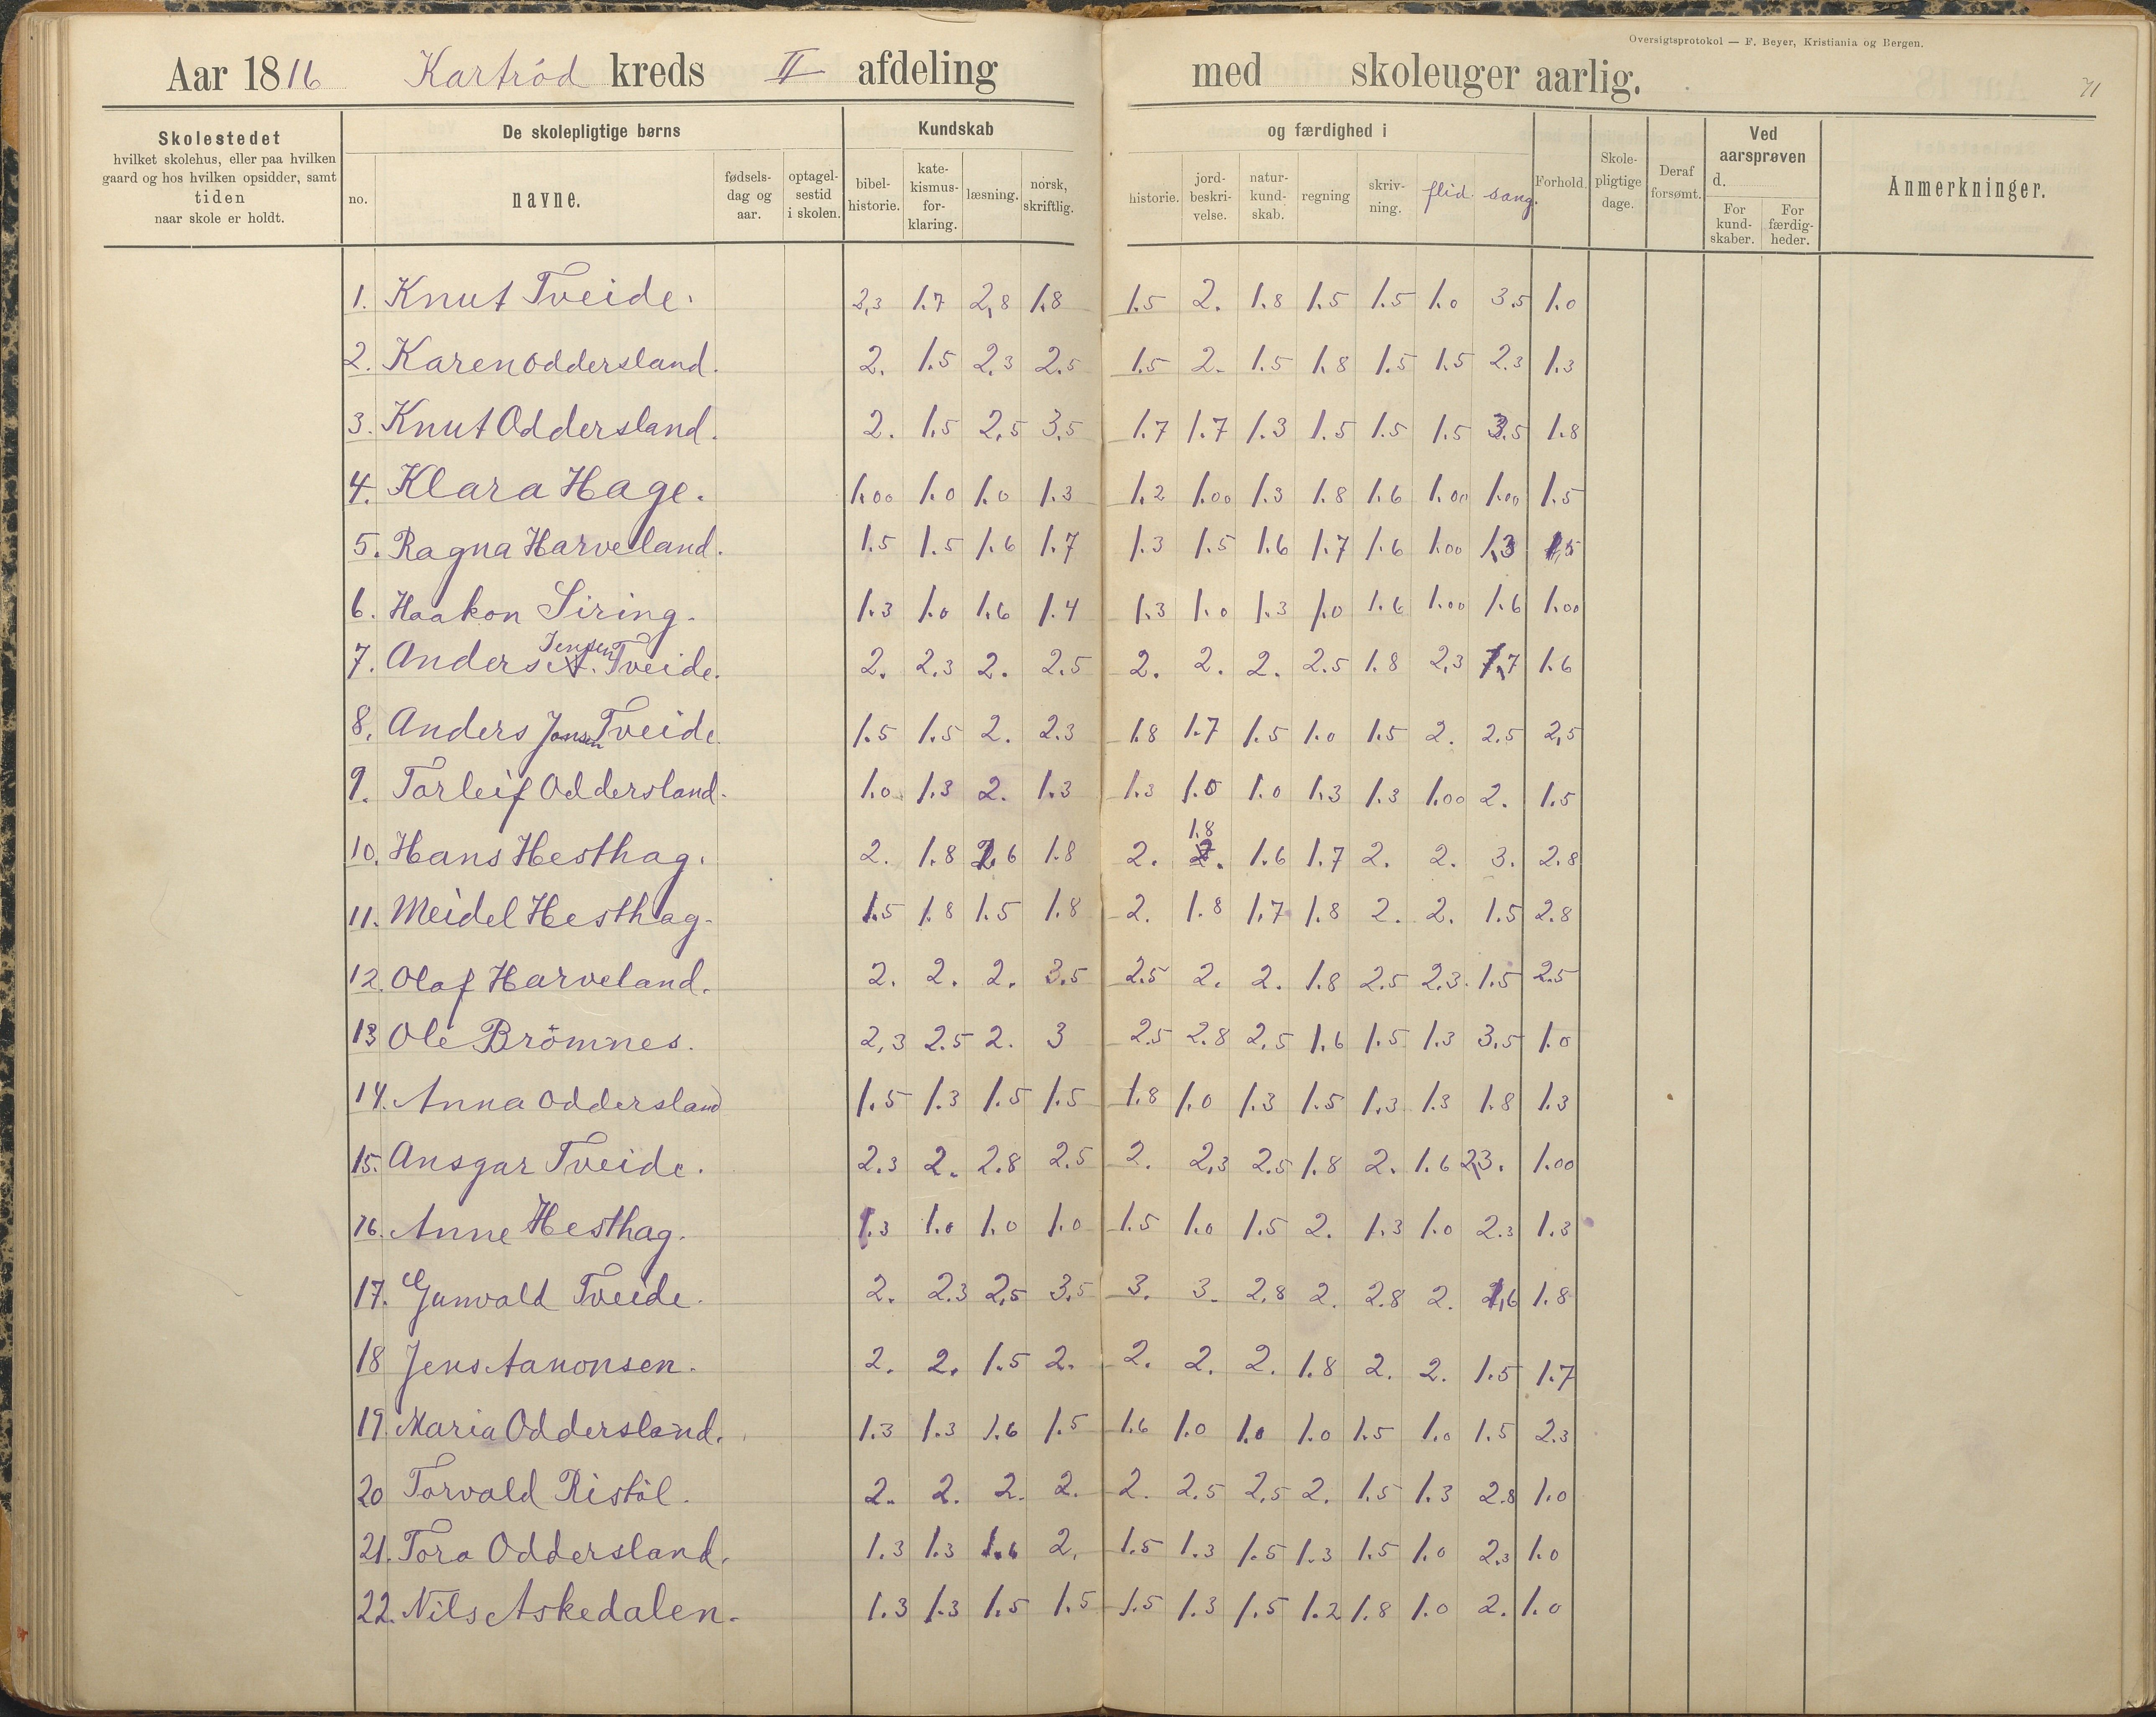 Oversigtsprotokol — F. Beyer, Kristiania og Bergen.
Aar 1816 Kartröd kreds II afdeling med skoleuger aarlig. 71
Skolestedet
hvilket skolehus, eller paa hvilken
gaard og hos hvilken opsidder, samt
tiden
naar skole er holdt.
De skolepligtige børns
no.
navne.
fødsels-
dag og
aar.
optagel-
sestid
i skolen.
Kundskab
bibel-
historie.
kate-
kismus-
for-
klaring.
læsning.
norsk,
skriftlig.
og færdighed i
historie.
jord-
beskri-
velse.
natur-
kund-
skab.
regning
skriv-
ning.
flid.
sang.
Forhold.
Skole-
pligtige
dage.
Deraf
forsømt.
Ved
aarsprøven
d.
For
kund-
skaber.
For
færdig-
heder.
Anmerkninger.
1. Knut Tveide. 2,3 1.7 2,8 1.8 1.5 2. 1.8 1.5 1.5 1.0 3.5 1.0
2. Karen Oddersland. 2. 1.5 2.3 2.5 1.5 2. 1.5 1.8 1.5 1.5 2.3 1.3
3. Knut Oddersland. 2. 1.5 2.5 3.5 1.7 1.7 1.3 1.5 1.5 1.5 3.5 1.8
4. Klara Hage. 1.00 1.0 1.0 1.3 1.2 1.00 1.3 1.8 1.6 1.00 1.00 1.5
5. Ragna Harveland. 1.5 1.5 1.6 1.7 1.3 1.5 1.6 1.7 1.6 1.00 1.3 1,5
6. Haakon Siring. 1.3 1.0 1.6 1.4 1.3 1.0 1.3 1.0 1.6 1.00 1.6 1.00
7. Anders Jensen Tveide. 2. 2.3 2. 2.5 2. 2. 2. 2.5 1.8 2,3 1,7 1.6
8. Anders Jonsen Tveide. 1.5 1.5 2. 2.3 1.8 1.7 1.5 1.0 1.5 2. 2.5 2,5
9. Torleif Oddersland. 1.0 1.3 2. 1.3 1.3 1.0 1.0 1.3 1.3 1.00 2. 1.5
10. Hans Hesthag. 2. 1.8 1.6 1.8 2. 1.8 1.6 1.7 2. 2. 3. 2.8
11. Meidel Hesthag. 1.5 1.8 1.5 1.8 2. 1.8 1.7 1.8 2. 2. 1.5 2.8
12. Olaf Harveland. 2. 2. 2. 3.5 2.5 2. 2. 1.8 2.5 2.3. 1.5 2.5
13 Ole Brömnes. 2,3 2.5 2. 3 2.5 2.8 2.5 1.6 1.5 1.3 3.5 1.0
14. Anna Oddersland 1.5 1.3 1.5 1.5 1.8 1.0 1.3 1.5 1.3 1.3 1.8 1.3
15. Ansgar Tveide. 2.3 2. 2.8 2.5 2. 2,3 2.5 1.8 2. 1.6 2,3. 1.00
16. Anne Hesthag. 1.3 1.0 1.0 1.0 1.5 1.0 1.5 2. 1.3 1.0 2.3 1.3
17. Gunvald Tveide. 2. 2.3 2,5 3,5 3. 3. 2,8 2. 2.8 2. 1,6 1.8
18 Jens Aanonsen. 2. 2. 1.5 2. 2. 2. 2. 1.8 2. 2. 1.5 1.7
19. Maria Oddersland. 1.3 1.3 1.6 1.5 1.6 1.0 1.0 1.0 1.5 1.0 1.5 2.3
20 Torvald Ristöl. 2. 2. 2. 2. 2. 2.5 2.5 2. 1.5 1.3 2.8 1.0
21. Tora Oddersland. 1.3 1.3 1.6 2. 1.5 1.3 1.5 1.3 1.5 1.0 2.3 1.0
22. Nils Askedalen. 1.3 1.3 1.5 1.5 1.5 1.3 1.5 1.2 1.8 1.0 2. 1.0